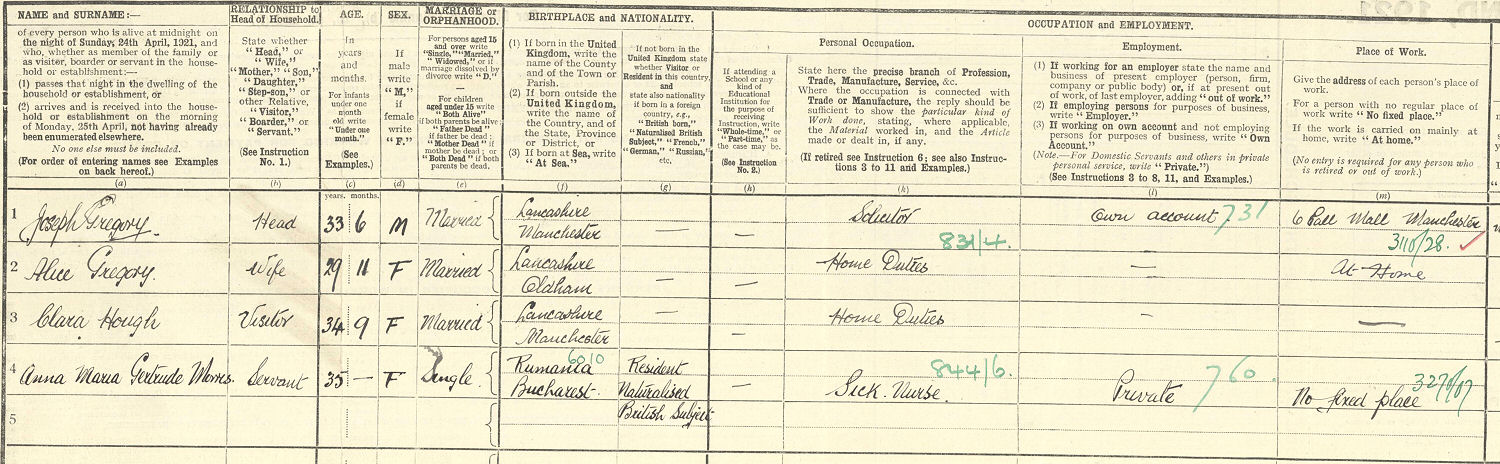 NAME and SURNAME:—
of every person who is alive at midnight on
the night of Sunday, 24th April, 1921, and
who, whether as member of the family or
as visitor, boarder or servant in the house-
hold or establishment:—
(1) passes that night in the dwelling of the
household or establishment, or
(2) arrives and is received into the house-
hold or establishment on the morning
of Monday, 25th April, not having already
been enumerated elsewhere.
No one else must be included.
(For order of entering names see Examples
on back hereof.)
(a)
RELATIONSHIP to
Head of Household.
State whether
"Head," or
"Wife,"
"Mother," "Son,"
"Daughter,"
"Step-son," or
other Relative,
"Visitor,"
"Boarder," or
"Servant."
(See Instruction
No. 1.)
(b)
AGE.
In
years
and
months.
For infants
under one
month old
write "Under
one month."
(See
Examples.)
(c)
years. months.
SEX.
If
male
write
"M,"
if
female
write
"F."
(d)
MARRIAGE or
ORPHANHOOD.
For persons aged 15
and over write
"Single," "Married,"
"Widowed," or if
marriage dissolved by
divorce write "D."
—
For children
aged under 15 write
"Both Alive"
if both parents be alive
"Father Dead"
if father be dead;
"Mother Dead" if
mother be dead; or
"Both Dead" if both
parents be dead.
(e)
BIRTHPLACE and NATIONALITY.
(1) If born in the United
Kingdom, write the
name of the County
and of the Town or
Parish.
(2) If born outside the
United Kingdom,
write the name of
the Country, and of
the State, Province
or District, or
(3) If born at Sea, write
"At Sea."
(f)
If not born in the
United Kingdom state
whether Visitor or
Resident in this country,
and
state also nationality
if born in a foreign
country, e.g.,
"British born,"
"Naturalised British
Subject," "French,"
"German," "Russian,"
etc.
(g)
OCCUPATION and EMPLOYMENT.
If attending a
School or any
kind of
Educational
Institution for
the purpose of
receiving
Instruction, write
"Whole-time," or
"Part-time," as
the case may be.
(See Instruction
No. 2.)
(h)
Personal Occupation.
State here the precise branch of Profession,
Trade, Manufacture, Service, &c.
Where the occupation is connected with
Trade or Manufacture, the reply should be
sufficient to show the particular kind of
Work done, stating, where applicable,
the Material worked in, and the Article
made or dealt in, if any.
(If retired see Instruction 6; see also Instruc-
tions 3 to 11 and Examples.)
(k)
Employment.
(1) If working for an employer state the name and
business of present employer (person, firm,
company or public body) or, if at present out
of work, of last employer, adding "out of work."
(2) If employing persons for purposes of business,
write "Employer."
(3) If working on own account and not employing
persons for purposes of business, write "Own
Account."
(Note.—For Domestic Servants and others in private
personal service, write "Private.")
(See Instructions 3 to 8, 11, and Examples.)
(l)
Place of Work.
Give the address of each person's place of
work.
For a person with no regular place of
work write "No fixed place."
If the work is carried on mainly at
home, write "At home."
(No entry is required for any person who
is retired or out of work.)
(m)
1 Joseph Gregory. Head 33 6 M Married Lancashire — — Solicitor Own account 731 6 Pall Mall Manchester
Manchester 831/4. 3110/28.
2 Alice Gregory. Wife 29 11 F Married Lancashire — — Home Duties — At Home
Oldham
3 Clara Hough Visitor 34 9 F Married Lancashire — — Home Duties — —
Manchester
4 Anna Maria Gertrude Morris. Servant 35 — F Single. Rumania 6010 Resident — Sick Nurse. 844/6. Private 760. No fixed place
Bucharest. Naturalised
British Subject
5